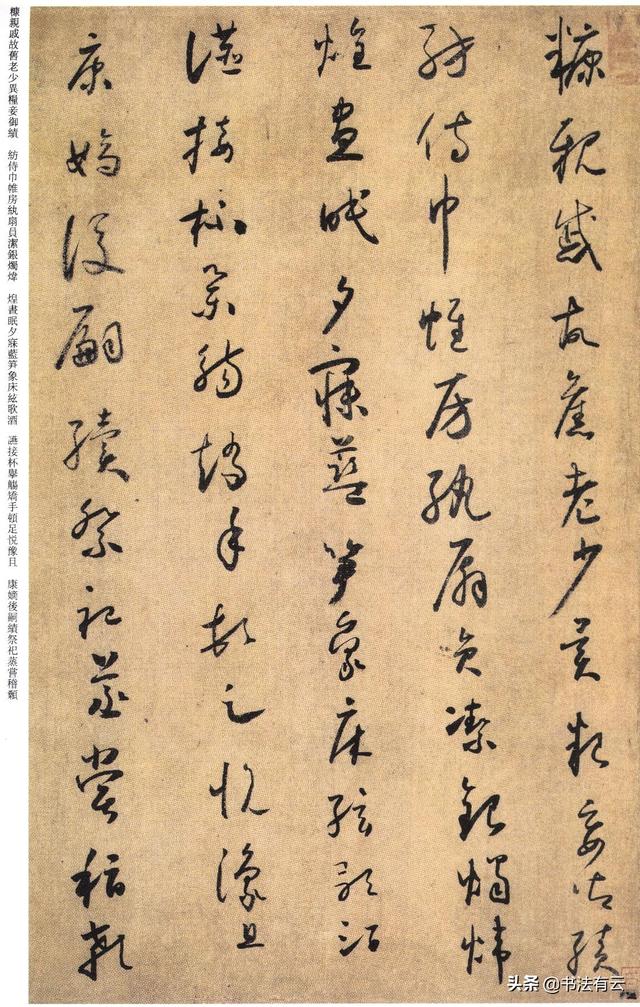 糠親戚故舊老少異粮妾御績
紡侍巾帷房紈扇員潔銀燭煒
煌晝眠夕寐藍笋象床絃歌酒
讌接杯舉觴矯手頓足悅豫且
康嫡後嗣續祭祀蒸嘗稽顙
糠親戚故舊老少異糧妾御績　紡侍巾帷房紈扇員潔銀燭煒　煌晝眠夕寐藍笋象床絃歌酒　讌接杯舉觴矯手頓足悦豫且　康嫡後嗣績祭祀蒸嘗稽顙
头条 @书法有云